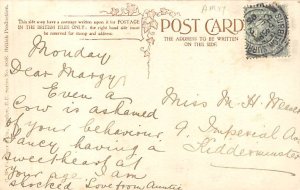 This side may have a message written upon it for POSTAGE
IN THE BRITISH ISLES ONLY
the right hand side must
be reserved for stamp and address.
POST CARD
THE ADDRESS TO BE WRITTEN
ON THIS SIDE.
Monday
Dear Margy
Even a
Cow is ashamed
of your behaviour
Fancy having a
sweetheart at
your age. I am
shocked Love from Auntie
Miss M. H.
9. Imperial
Kidderminster